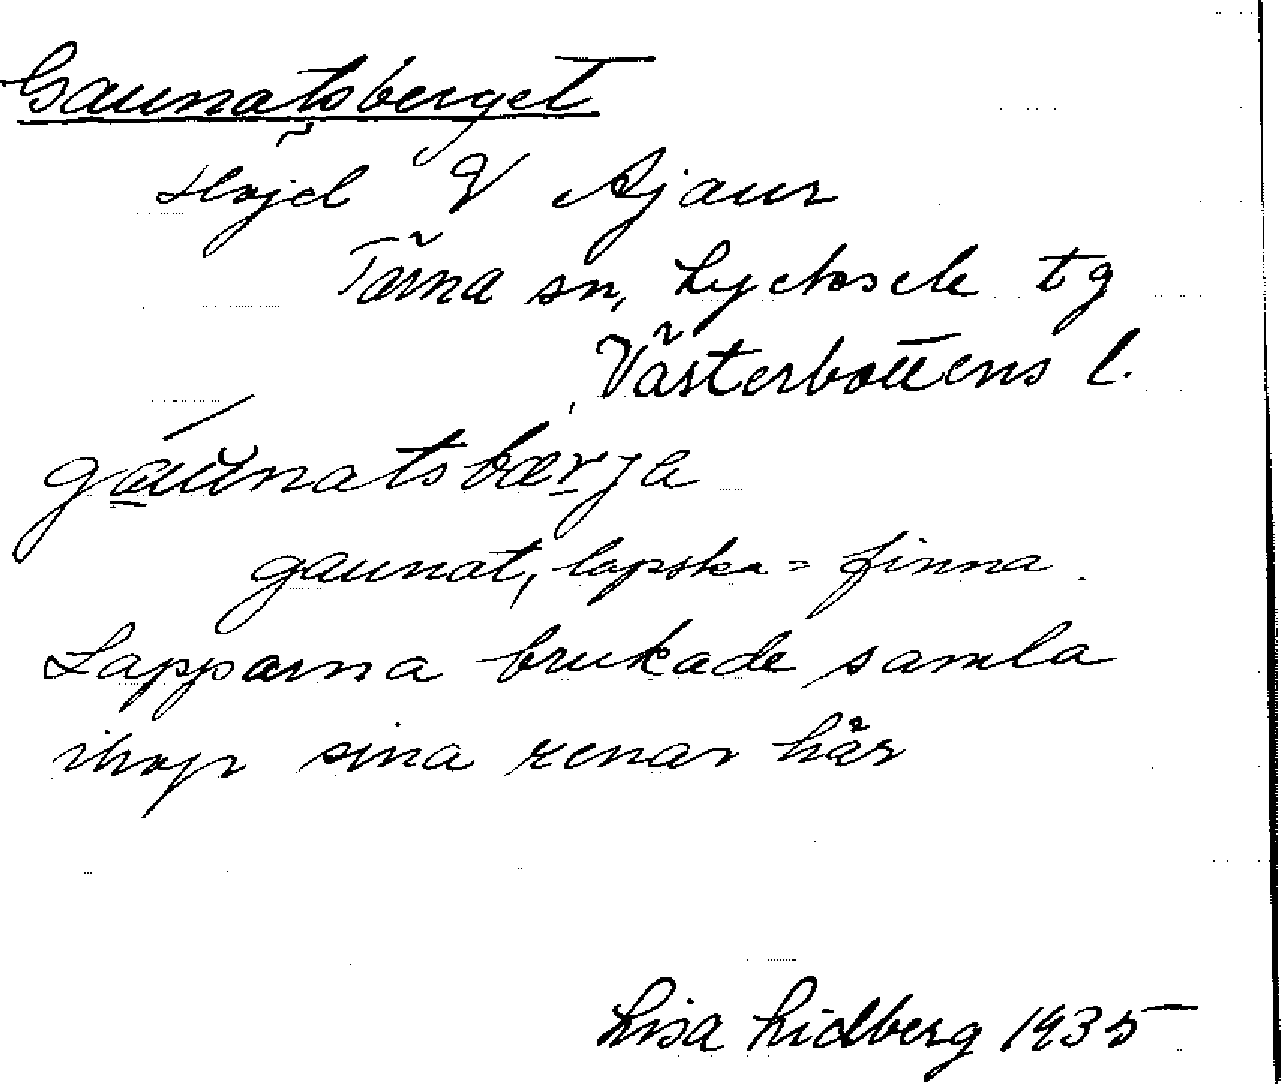 Gaunatsberget
Höjd V Ajaur
Tärna sn, Lycksele tg
Västerbottens l.
gaŭnatsbærja
gaunat, lapska = finna.
Lapparna brukade samla
ihop sina renar här
Lisa Lidberg 1935